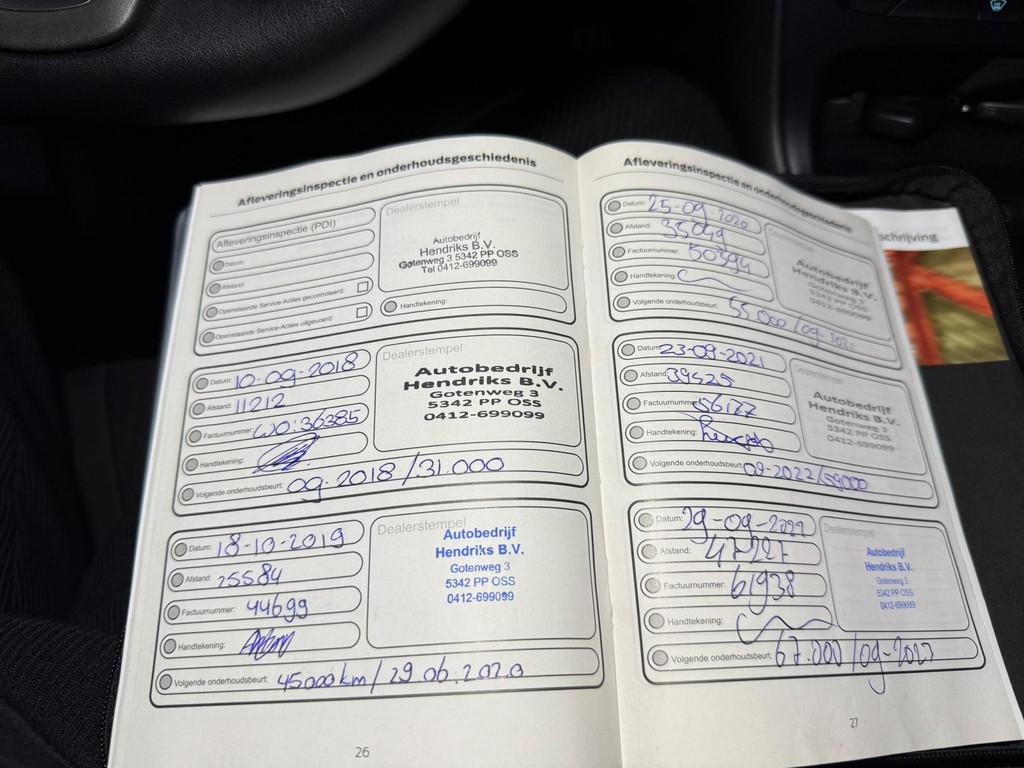 Afleveringsinspectie en onderhoudsgeschiedenis
Afleveringsinspectie (PDI)
Datum:
Afstand:
Openstaande Service-Acties gecontroleerd:
Openstaande Service-Acties uitgevoerd:
Dealerstempel
Autobedrijf
Hendriks B.V.
Gotenweg 3 5342 PP OSS
Tel 0412-699099
Handtekening:
Datum: 10-09-2018
Afstand: 11212
Factuurnummer: WO:36385
Handtekening:
Volgende onderhoudsbeurt: 09-2018/31.000
Dealerstempel
Autobedrijf
Hendriks B.V.
Gotenweg 3
5342 PP OSS
0412-699099
Datum: 18-10-2019
Afstand: 25584
Factuurnummer: 44699
Handtekening:
Volgende onderhoudsbeurt: 45000km/29.06.2020
Dealerstempel
Autobedrijf
Hendriks B.V.
Gotenweg 3
5342 PP OSS
0412-699099
26
Afleveringsinspectie en onderhoudsgeschiedenis
Datum: 25-09-2020
Afstand: 35099
Factuurnummer: 50394
Handtekening:
Volgende onderhoudsbeurt: 55.000/09-2021
Dealerstempel
Autobedrijf
Hendriks B.V.
Gotenweg 3
5342 PP OSS
0412-699099
Datum: 23-09-2021
Afstand: 39425
Factuurnummer: 56177
Handtekening:
Volgende onderhoudsbeurt: 09-2022/59000
Dealerstempel
Autobedrijf
Hendriks B.V.
Gotenweg 3
5342 PP OSS
0412-699099
Datum: 29-09-2022
Afstand: 47227
Factuurnummer: 61938
Handtekening:
Volgende onderhoudsbeurt: 67.000/09-2023
Dealerstempel
Autobedrijf
Hendriks B.V.
Gotenweg 3
5342 PP OSS
0412-699099
27
schrijving